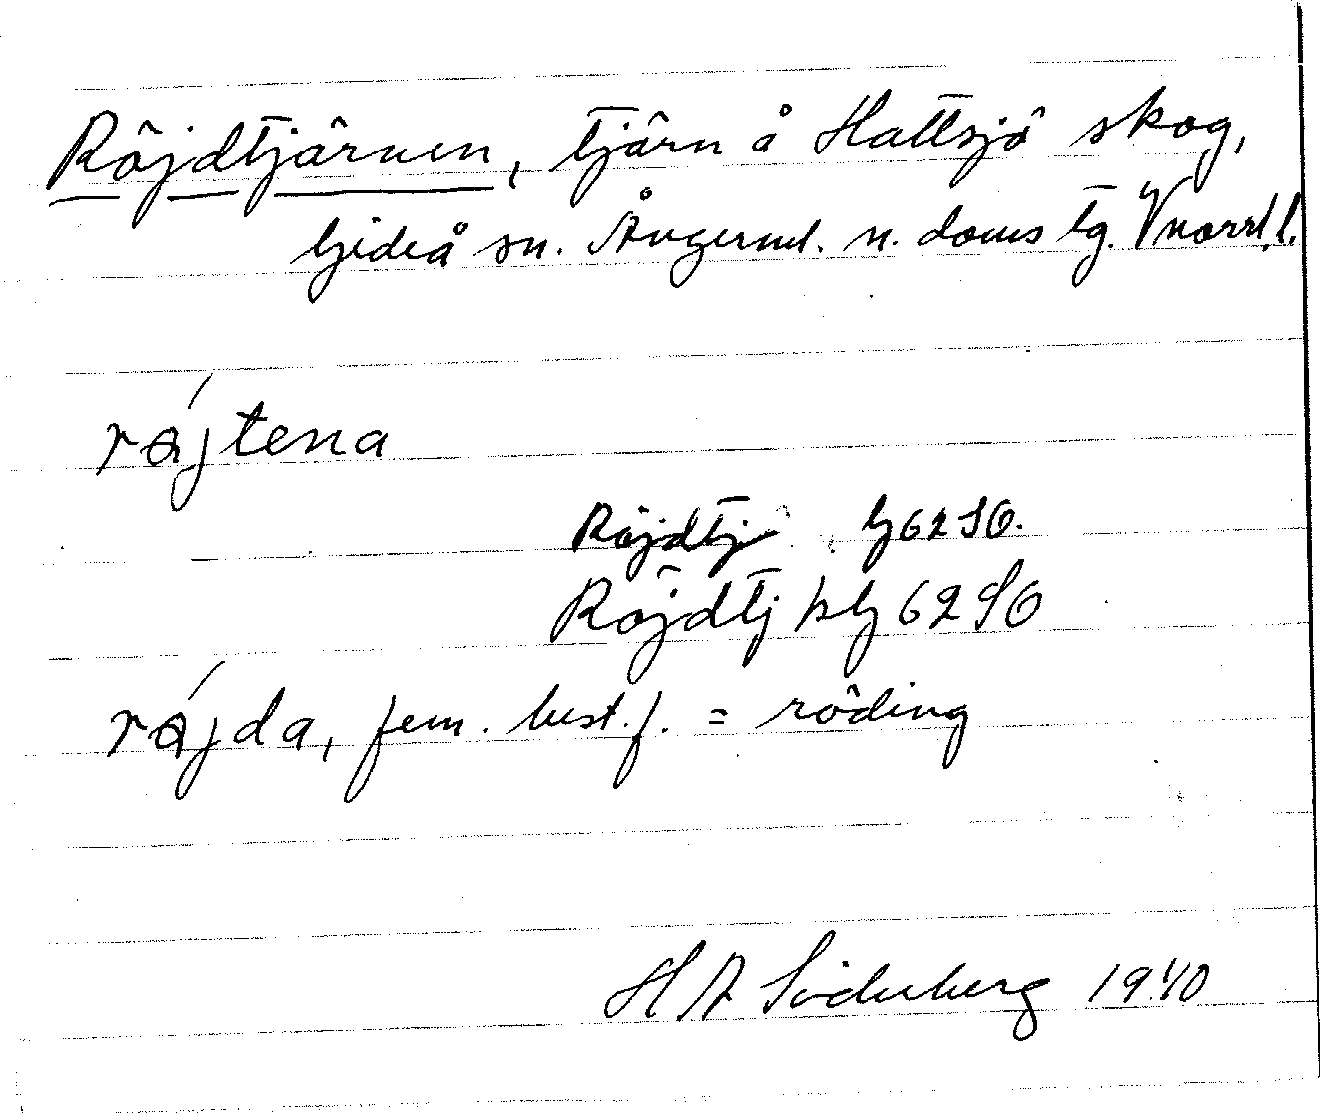 Röjdtjärnen, tjärn å Hattsjö skog,
Gideå sn. Ångerml. n. doms tg. Vnorrl. l.
röjtena
Röjdtj G62 SO.
Röjdtj blG 62 SO
röjda, fem. best. f. = röding
H A Söderberg 1940